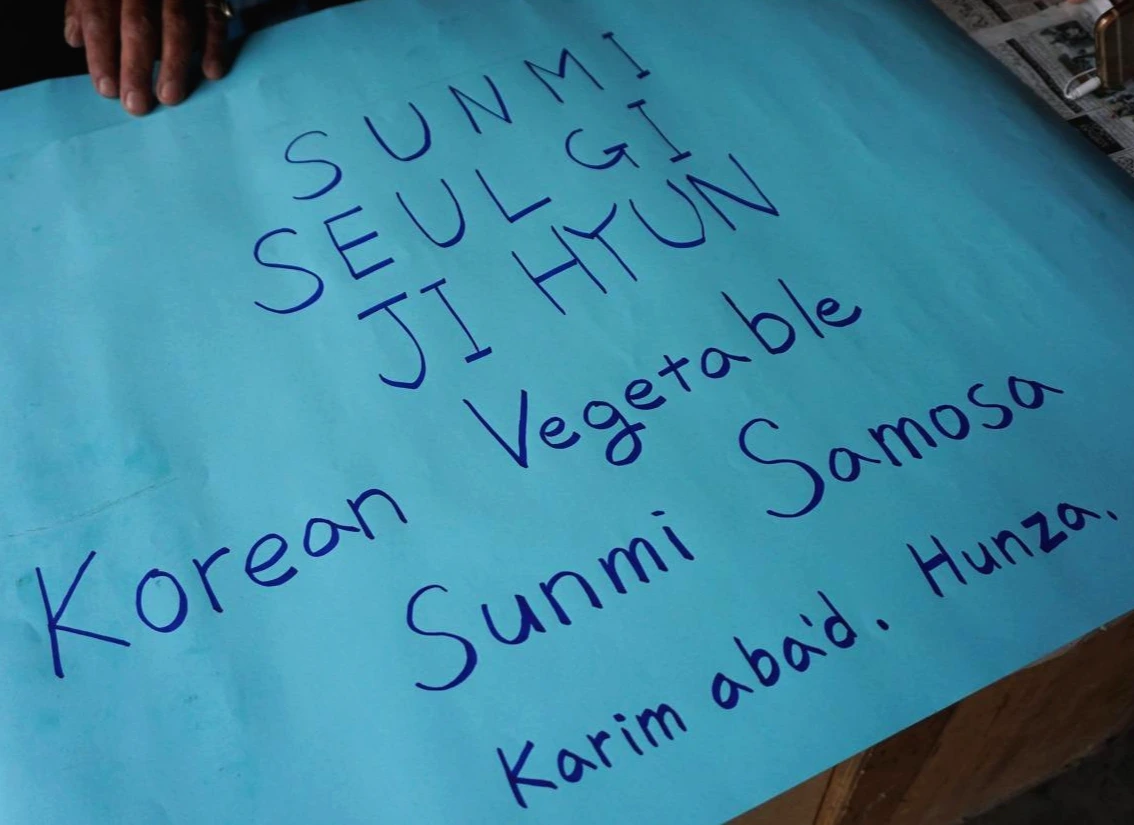 SUNMI
SEUL GI
JI HYUN
Korean Vegetable
Sunmi Samosa
Karim aba'd. Hunza.